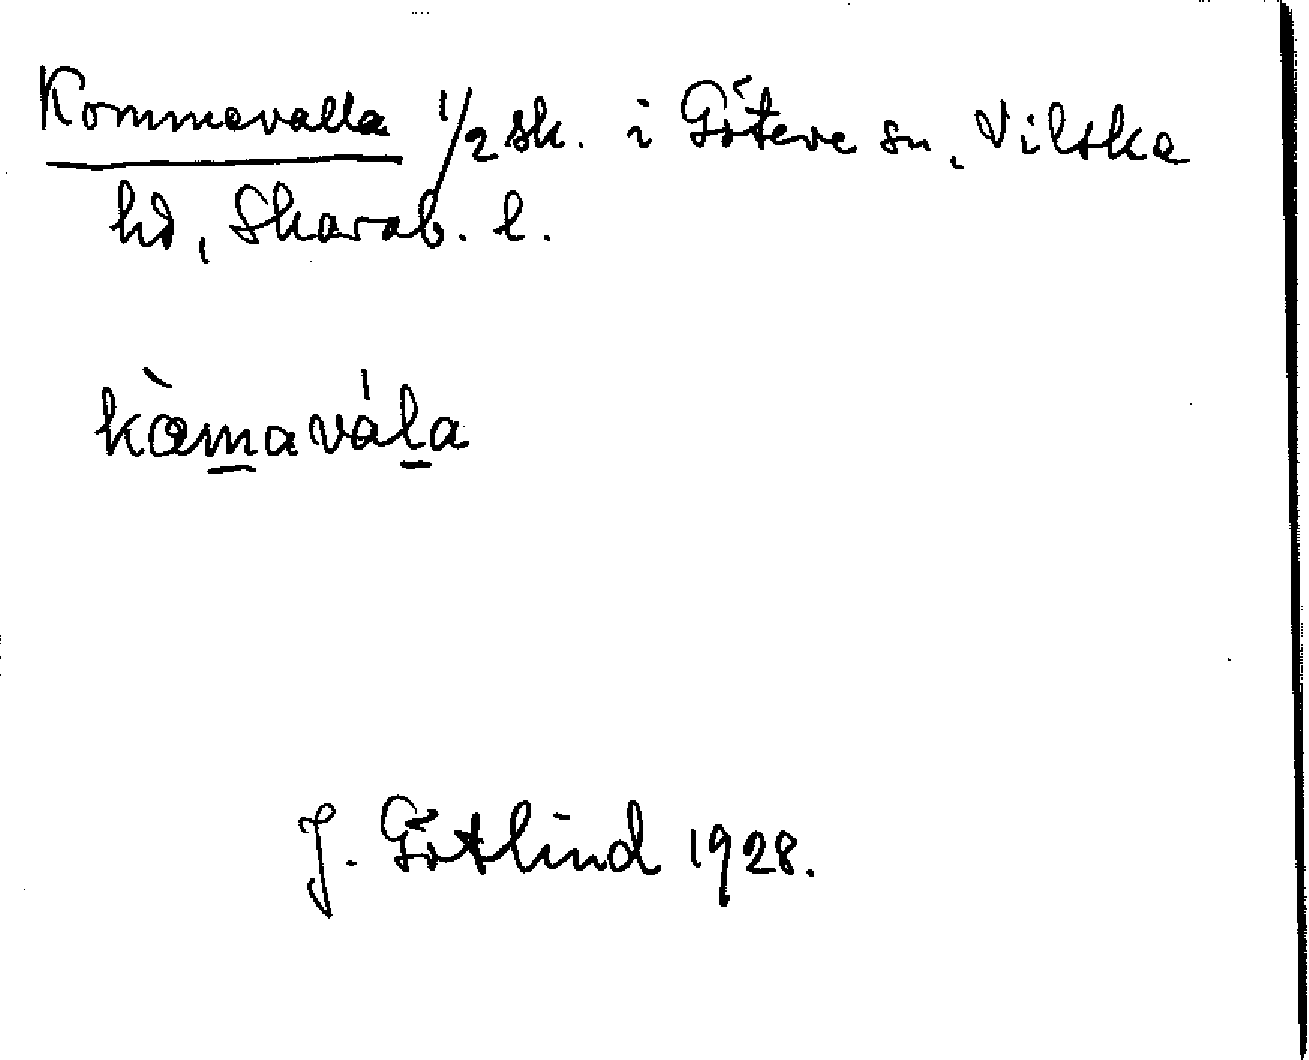 Kommavalla 1/2 sk. i Göteve sn, Vilska
hd, Skarab. l.
kò̵m̲avál̲a
J. Götlind 1928.